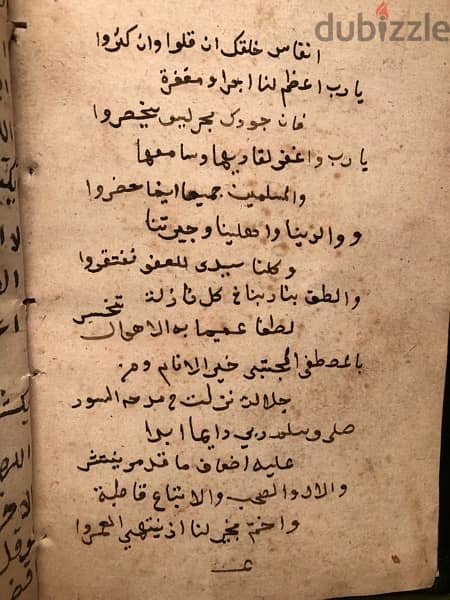 dubizzle
انفاس خلقك ان قلوا وان كثروا
يارب اعظم لنا اجرا ومغفرة
فان جودك بحر ليس ينحصروا
يارب واغفر لقاريها وسامعها
والمسلمين جميعا اينما حضروا
ووالدينا واهلينا وجيرتنا
وكلنا سيدى للعفو نفتقروا
والطف بنا ربنا فى كل نازلة
لطفا عميما به الاهوال تنحسر
بالمصطفى المجتبى خير الانام ومن
جلالة نزلت فى مدحه السور
صلى وسلم ربي دايما ابدا
عليه اضعاف ما قد ينتشر
والال والصحب والاتباع قاطبة
واختم بخير لنا اذ ينتهي العمروا